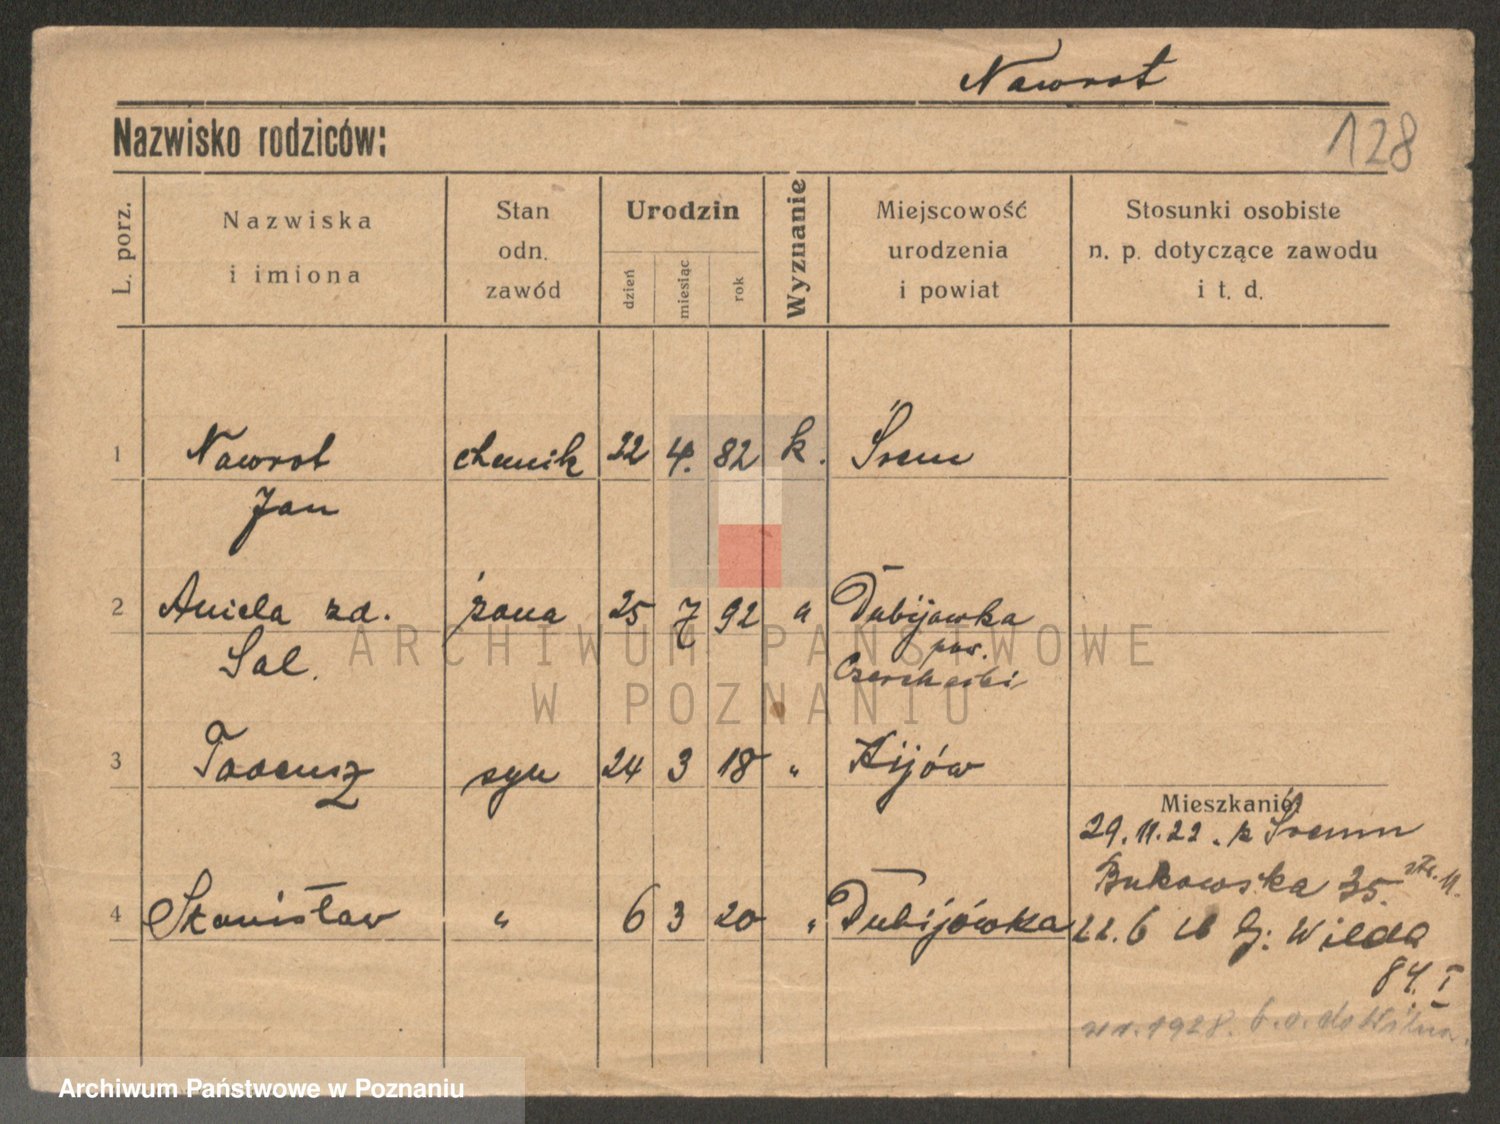 Nawrot
Nazwisko rodziców:
128
L. porz.
Nazwiska
i imiona
Stan
odn.
zawód
Urodzin
dzień
miesiąc
rok
Wyznanie
Miejscowość
urodzenia
i powiat
Stosunki osobiste
n. p. dotyczące zawodu
i t. d.
1 Nawrot chemik 22 4. 82 k. Śrem
Jan
2 Aniela zd. żona 25 7 92 " Dubijówka
Sal. pow.
Czerkaski
ARCHIWUM PAŃSTWOWE
W POZNANIU
3 Tadeusz syn 24 3 18 " Kijów
Mieszkanie:
29.11.22. z Śremu
Bukowska 35. str. 11.
4 Stanisław " 6 3 20 " Dubijówka
22.6 G: Wilda
84. I
1928. do Wilna.
Archiwum Państwowe w Poznaniu